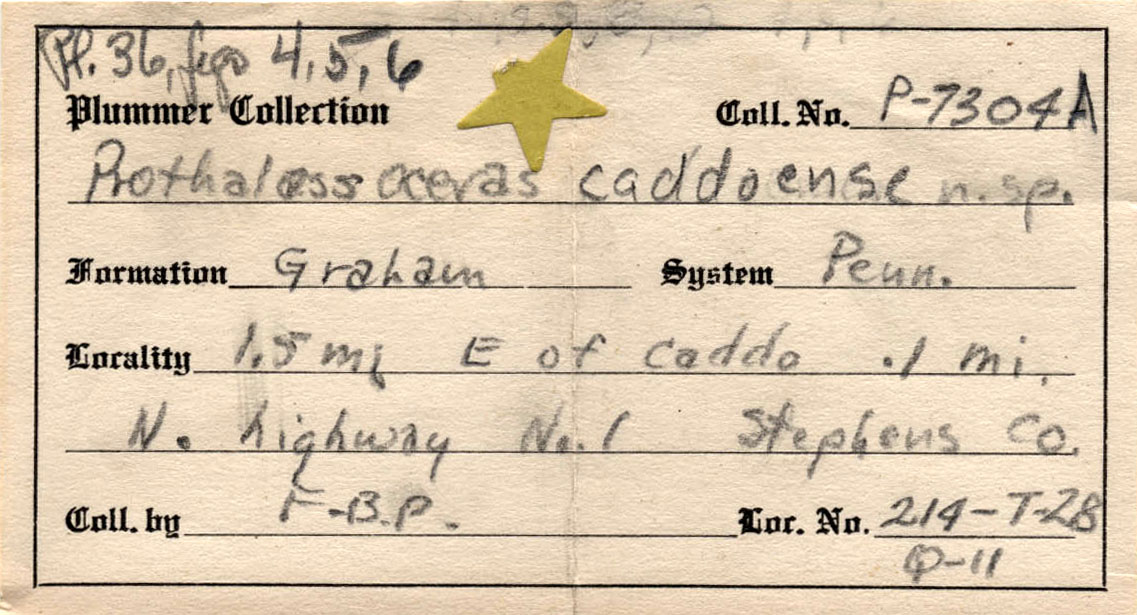 Pl. 36, figs 4, 5, 6
Plummer Collection Coll. No. P-7304A
Prothalassoceras caddoense n. sp.
Formation Graham System Penn.
Locality 1.5 mi E of Caddo .1 mi.
N. highway No. 1 Stephens Co.
Coll. by F.B.P. Loc. No. 214-T-28
Q-11